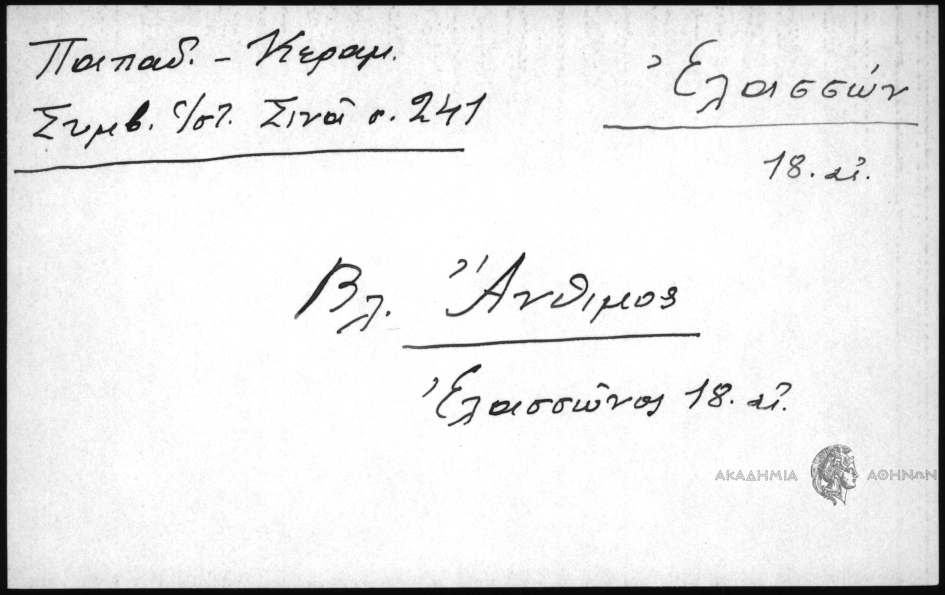 Παπαδ. - Κεραμ.
Συμβ. ἱστ. Σινᾶ σ. 241
Ἐλασσών
18. αἰ.
Βλ. Ἄνθιμος
Ἐλασσῶνος 18. αἰ.
ΑΚΑΔΗΜΙΑ ΑΘΗΝΩΝ